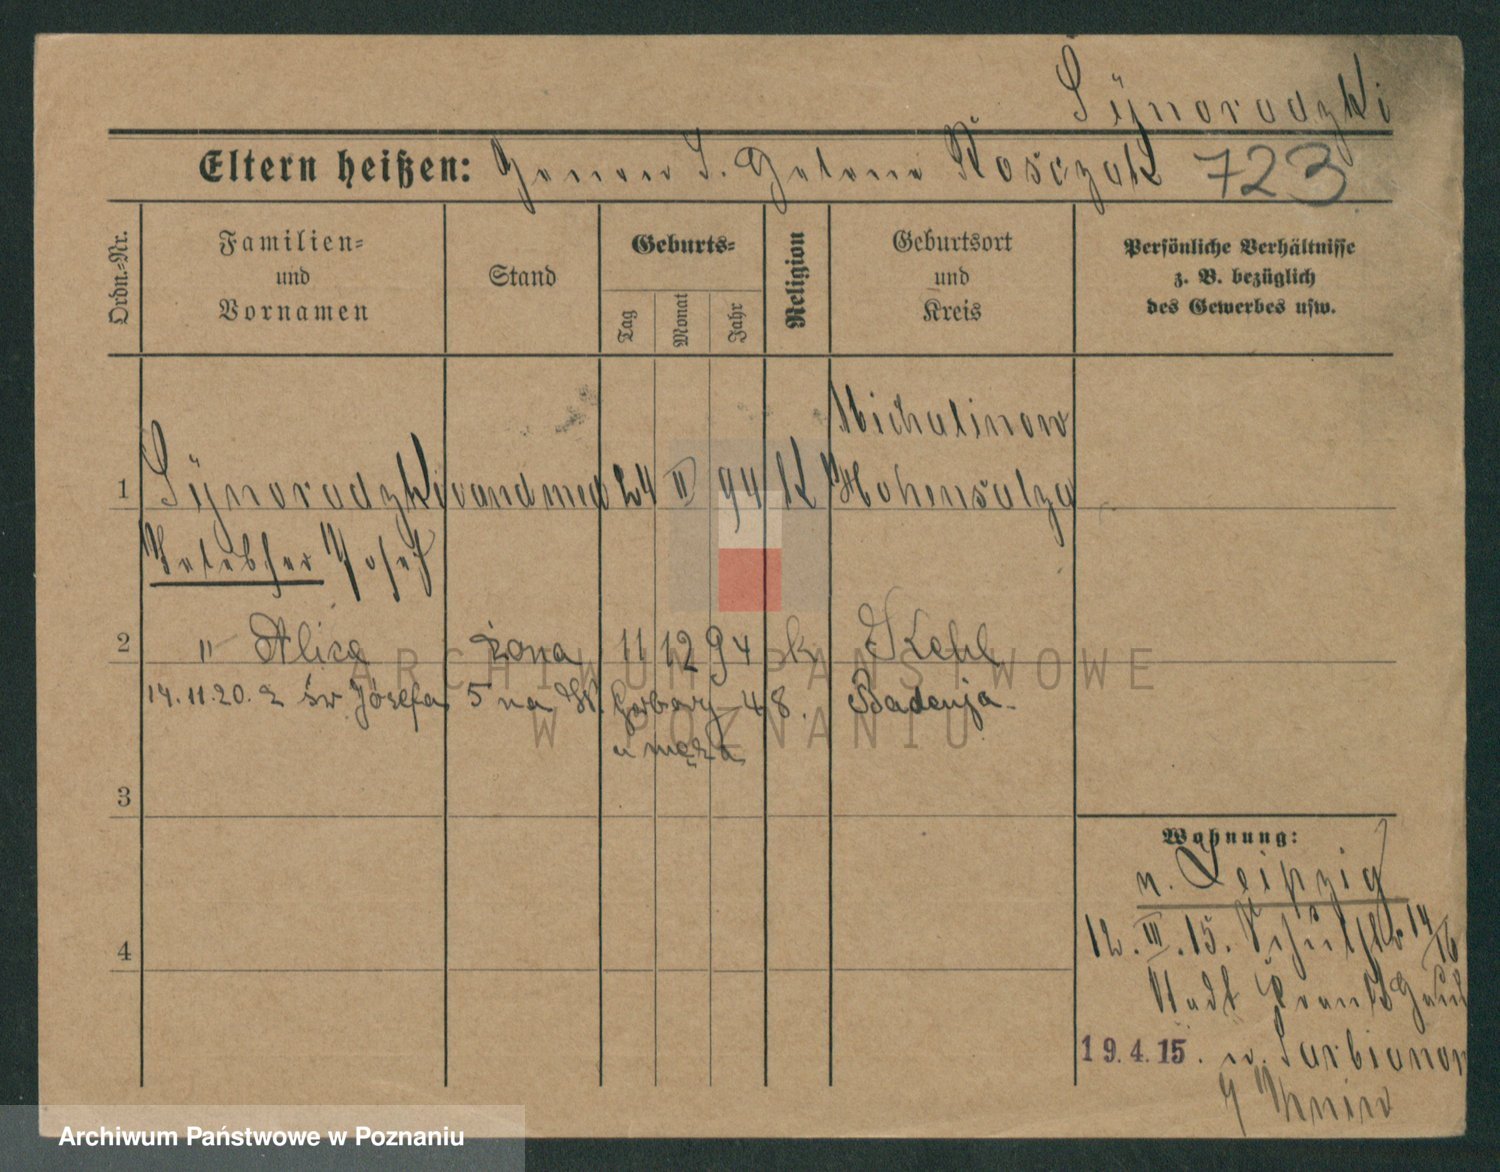 Sÿnoradzki
Eltern heißen: S. Helene Kosczak 723
Ordn.=Nr.
Familien=
und
Vornamen
Stand
Geburts=
Tag
Monat
Jahr
Religion
Geburtsort
und
Kreis
Persönliche Verhältnisse
z. B. bezüglich
des Gewerbes usw.
Michalinow
1 Sÿnoradzki cand med 24 II 94 K Hohensalza
Josef
2 " Alica żona 11 12 94 k Kehl
14.11.20. z św Józefa 5 na W. Garbary 48. Badenja
u męża
3
Wohnung:
n. Leipzig
12. III. 15. 14/16
4
Stadt
19.4.15. n. Sarbinowo
Znin
ARCHIWUM PAŃSTWOWE
W POZNANIU
Archiwum Państwowe w Poznaniu